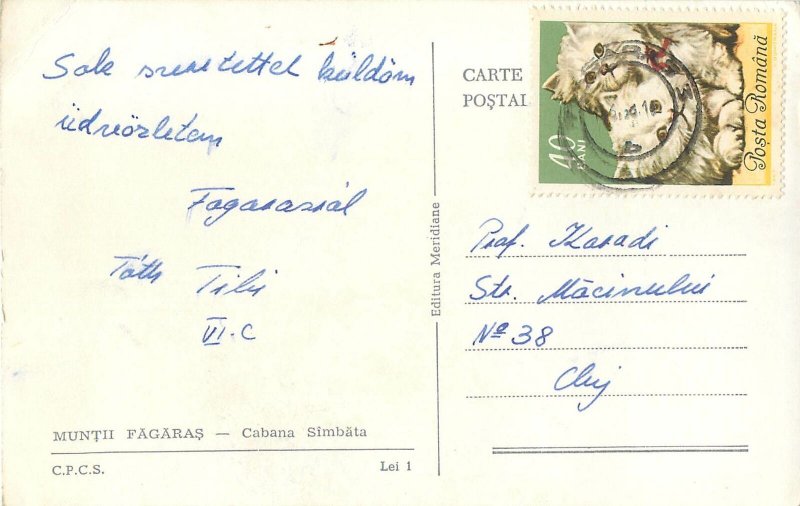 Sok szeretettel küldöm
üdvözletem
Fogarasról
Tóth Tibi
VI.C
MUNȚII FĂGĂRAȘ — Cabana Sîmbăta
C.P.C.S. Lei 1
Editura Meridiane
CARTE
POȘTAL
40
BANI
Poșta Română
Prof. Karadi
Str. Măcinului
Nº 38
Cluj